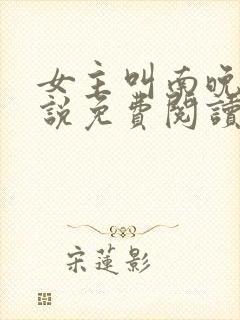 女主叫南晚
說免費閱讀
宋蓮影